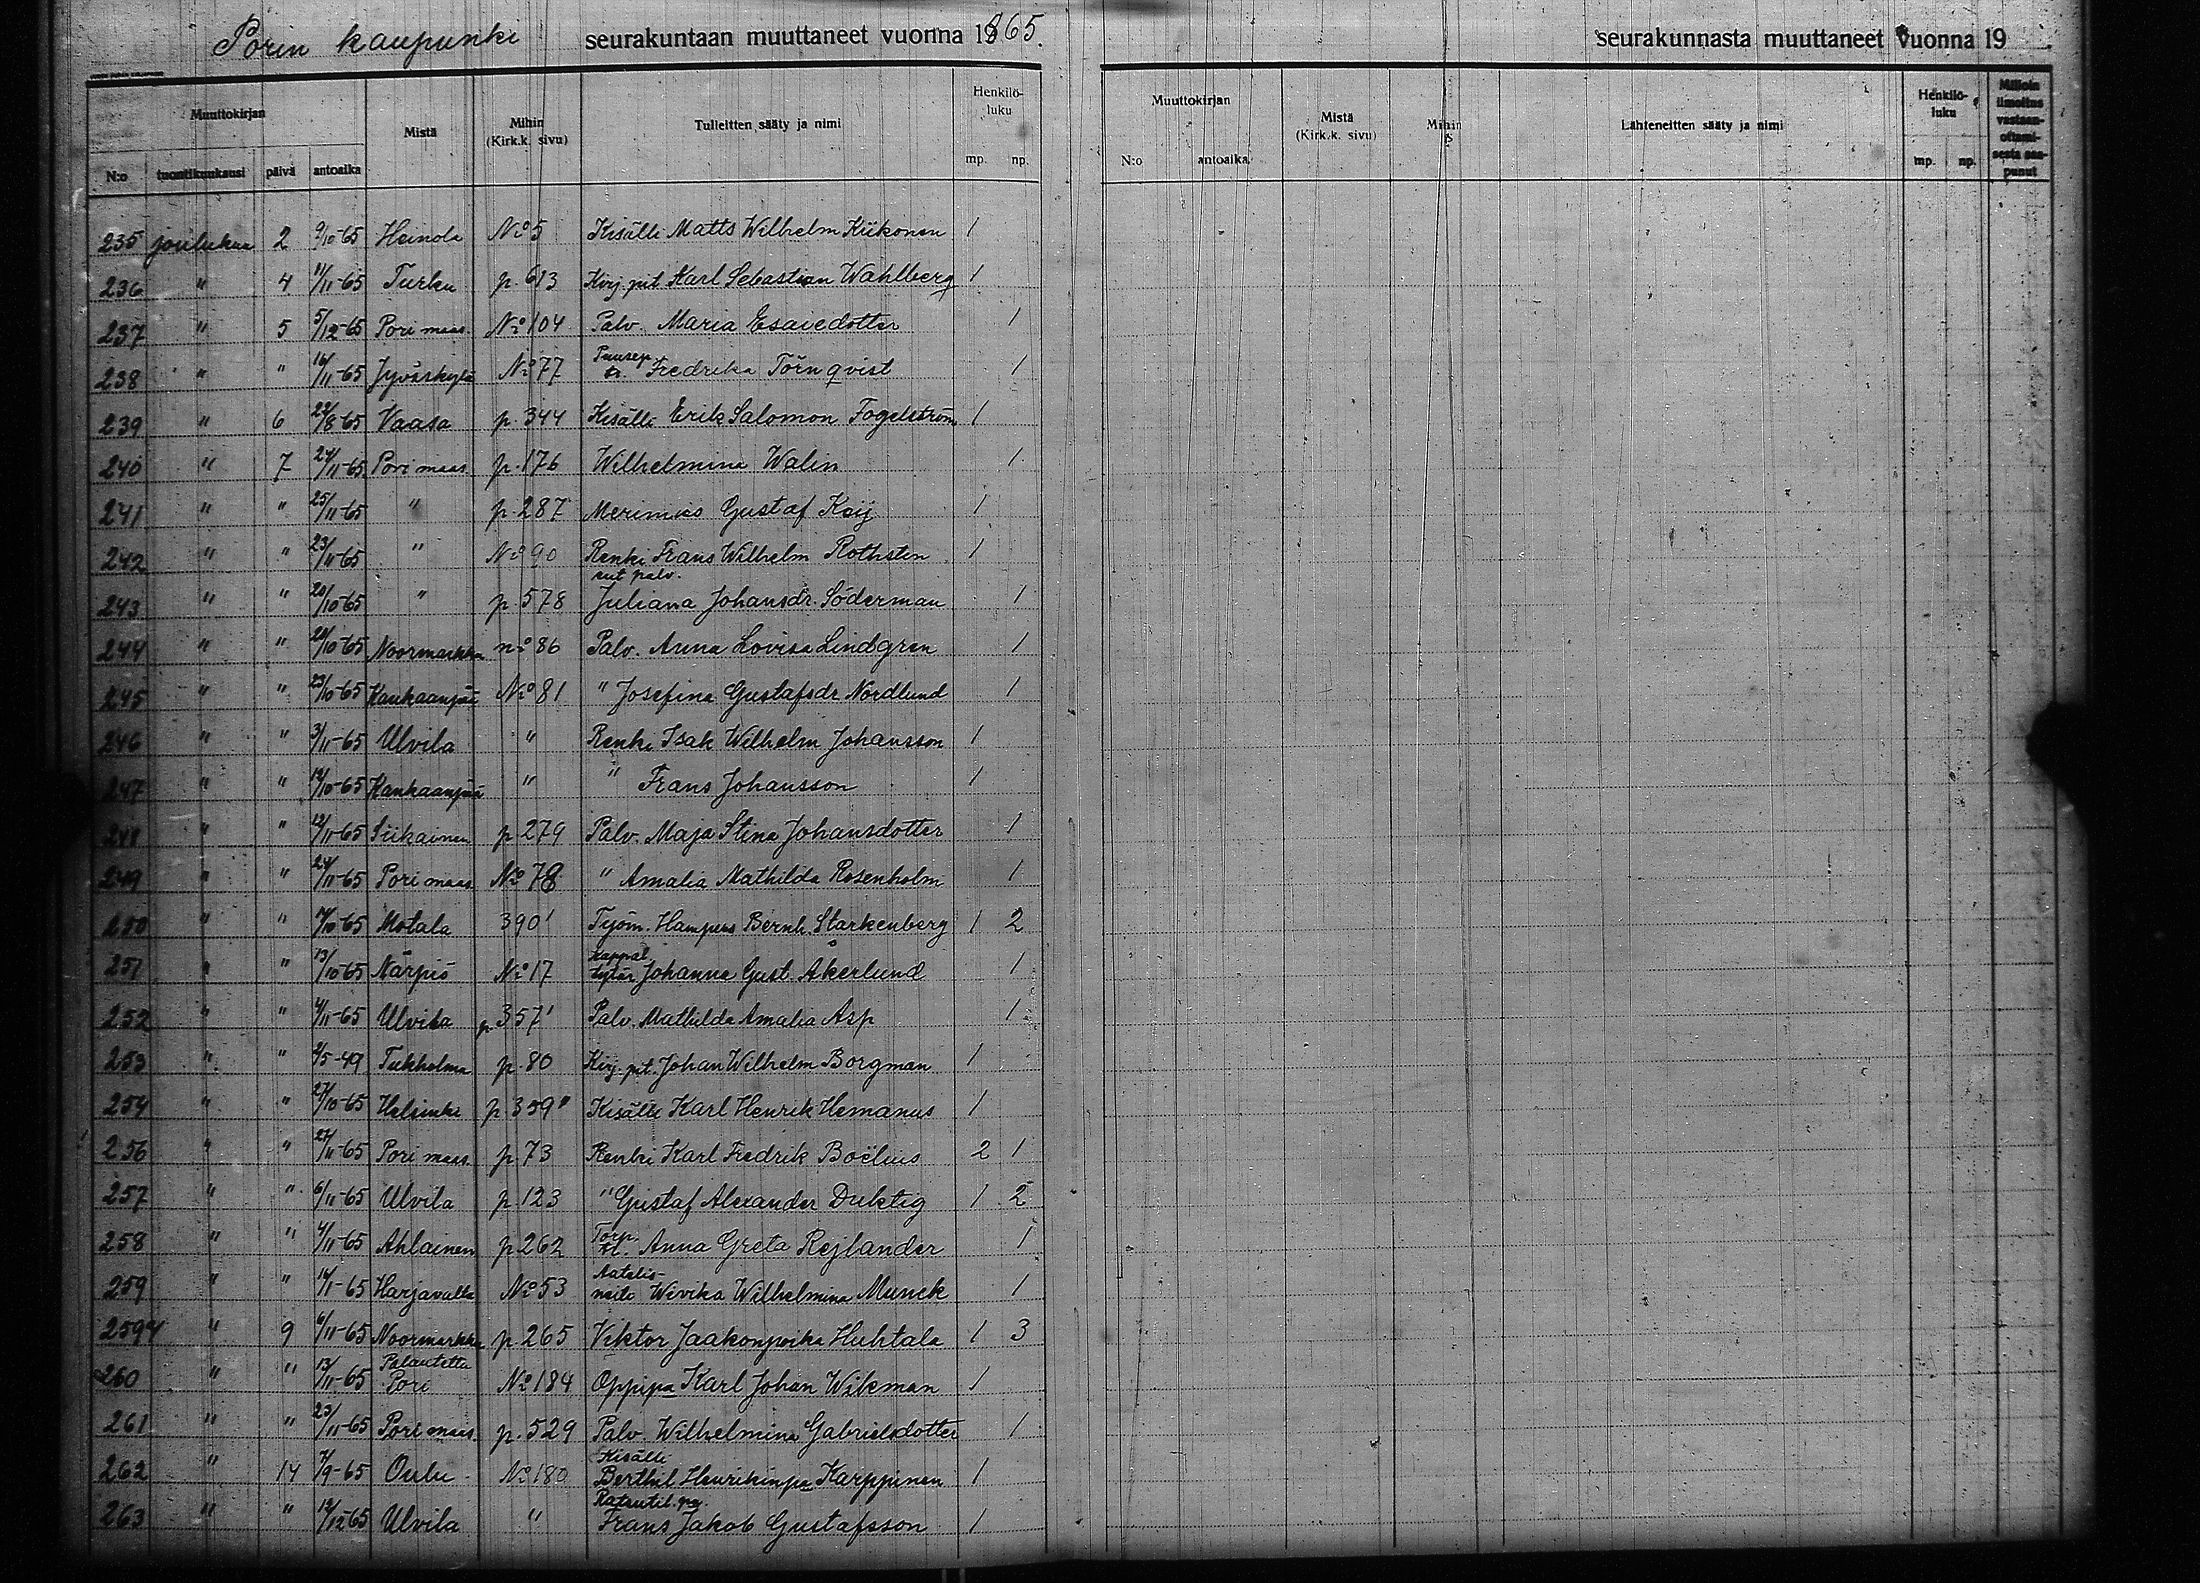 Porin kaupunki seurakuntaan muuttaneet vuonna 1865.
Muuttokirjan Mistä Mihin (Kirk.k. sivu) Tulleitten sääty ja nimi Henkilö-luku
N:o tuontikuukausi päivä antoaika mp. np.
235 joulukuu 2 9/10-65 Heinola No 5 Kisälli Matts Wilhelm Kiikonen 1
236 " 4 11/11-65 Turku p. 613 Kirj. pit Karl Sebastian Wahlberg 1
237 " 5 5/12-65 Pori maas. No 104 Palv. Maria Esaiedotter 1
238 " " 16/11-65 Jyväskylä No 77 Puusep. Fredrika Törnqvist 1
239 " 6 22/8-65 Vaasa p. 344 Kisälli Erik Salomon Fogelström 1
240 " 7 24/11-65 Pori maas. p. 176 Wilhelmina Walin 1
241 " " 25/11-65 " p. 287 Merimies Gustaf Kaij 1
242 " " 23/11-65 " No 90 Renki Frans Wilhelm Rothsten 1
243 " " 20/10-65 " p. 578 ent palv. Juliana Johansdr. Söderman 1
244 " " 20/10-65 Noormarkku no 86 Palv. Anna Lovisa Lindgren 1
245 " " 23/10-65 Kankaanpää No 81 " Josefina Gustafsdr Nordlund 1
246 " " 3/11-65 Ulvila " Renki Isak Wilhelm Johansson 1
247 " " 19/10-65 Kankaanpää " " Frans Johansson 1
248 " " 12/11-65 Siikainen p. 279 Palv. Maja Stina Johansdotter 1
249 " " 24/11-65 Pori maas No 78 " Amalia Mathilda Rosenholm 1
250 " " 14/10-65 Motala 390' Työm. Hampus Bernh. Starkenberg 1 2
251 " " 13/10-65 Närpiö No 17 Kappal. tytär Johanna Gust. Åkerlund 1
252 " " 4/11-65 Ulvila p 357' Palv. Mathilda Amalia Asp 1
253 " " 2/5-49 Tukholma p. 80 Kirj. pit. Johan Wilhelm Borgman 1
254 " " 27/10-65 Helsinki p. 359" Kisälli Karl Henrik Hemanus 1
256 " " 27/11-65 Pori maas. p. 73 Renki Karl Fredrik Boëlius 2 1
257 " " 6/11-65 Ulvila p. 123 " Gustaf Alexander Duktig 1 2
258 " " 4/11-65 Ahlainen p. 262 Torp. tl. Anna Greta Rejlander 1
259 " " 14/1-65 Harjavalta No 53 Aatelis-neito Wivika Wilhelmina Munck 1
259 " 9 6/11-65 Noormarkku p. 265 Viktor Jaakonpoika Huhtala 1 3
260 " " 13/11-65 Palautettu Pori No 184 Oppipa Karl Johan Wikman 1
261 " " 23/11-65 Pori maas. p. 529 Palv. Wilhelmina Gabrielsdotter 1
262 " 14 7/9-65 Oulu No 180 Kisälli Berthil Henrikinpa Karppinen 1
263 " " 12/12-65 Ulvila " Ratsutil. pa. Frans Jakob Gustafsson 1
seurakunnasta muuttaneet vuonna 19
Muuttokirjan Mistä (Kirk.k. sivu) Mihin Lähteneitten sääty ja nimi Henkilö-luku Milloin ilmoitus vastaan-ottami-sesta saa-punut
N:o antoaika mp. np.